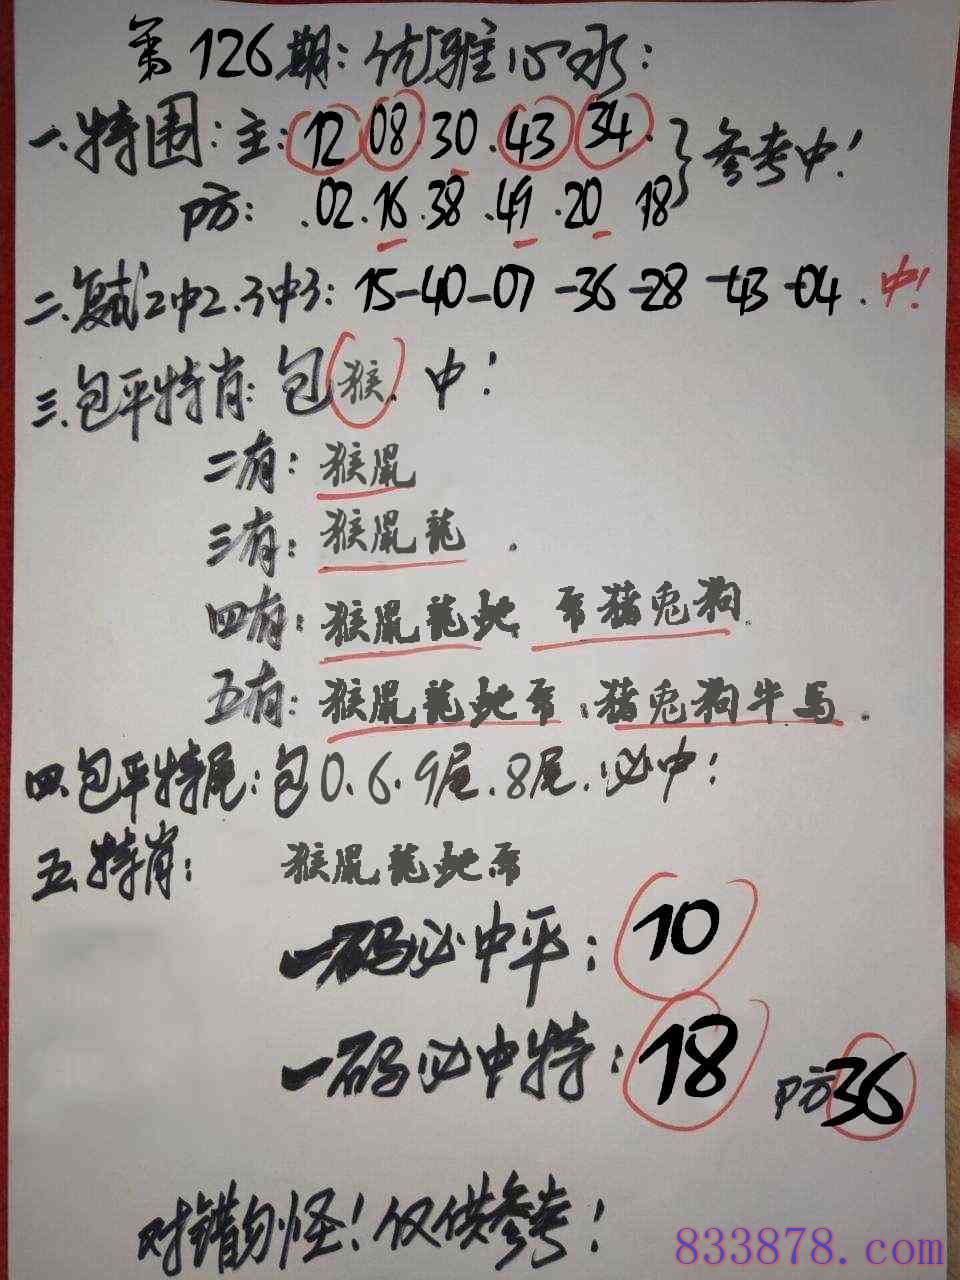 第126期:优雅心水:
一.特围:主:12 08.30.43 34. }参考中!
防:.02.16.38.49.20 18
二.复试2中2.3中3:15-40-07-36-28-43-04.中!
三.包平特肖:包猴.中!
二有:猴鼠
三有:猴鼠龍.
四有:猴鼠龍蛇 虎猪兎狗.
五有:猴鼠龍蛇虎.猪兎狗牛马.
四.包平特尾:包0.6.9尾.8尾.必中!
五.特肖: 猴鼠.龍蛇虎
一码必中平:10
一码必中特:18 防36
对错勿怪!仅供参考!
833878.com